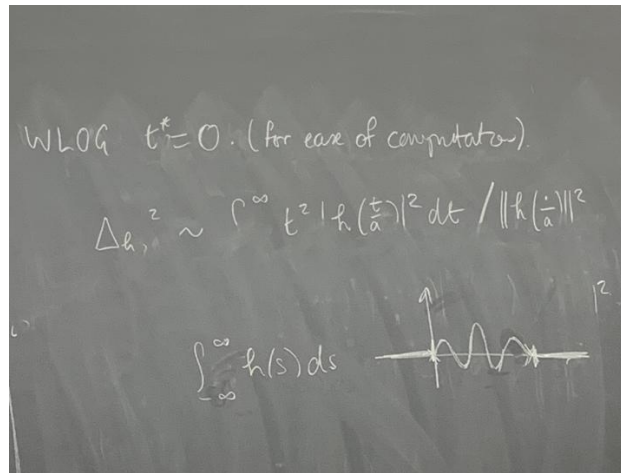 WLOG t* = 0. (for ease of computation).
Δ_h,² ~ ∫^∞ t² |h(t/a)|² dt / ||h(·/a)||²
|²
∫_{-∞}^{∞} h(s) ds